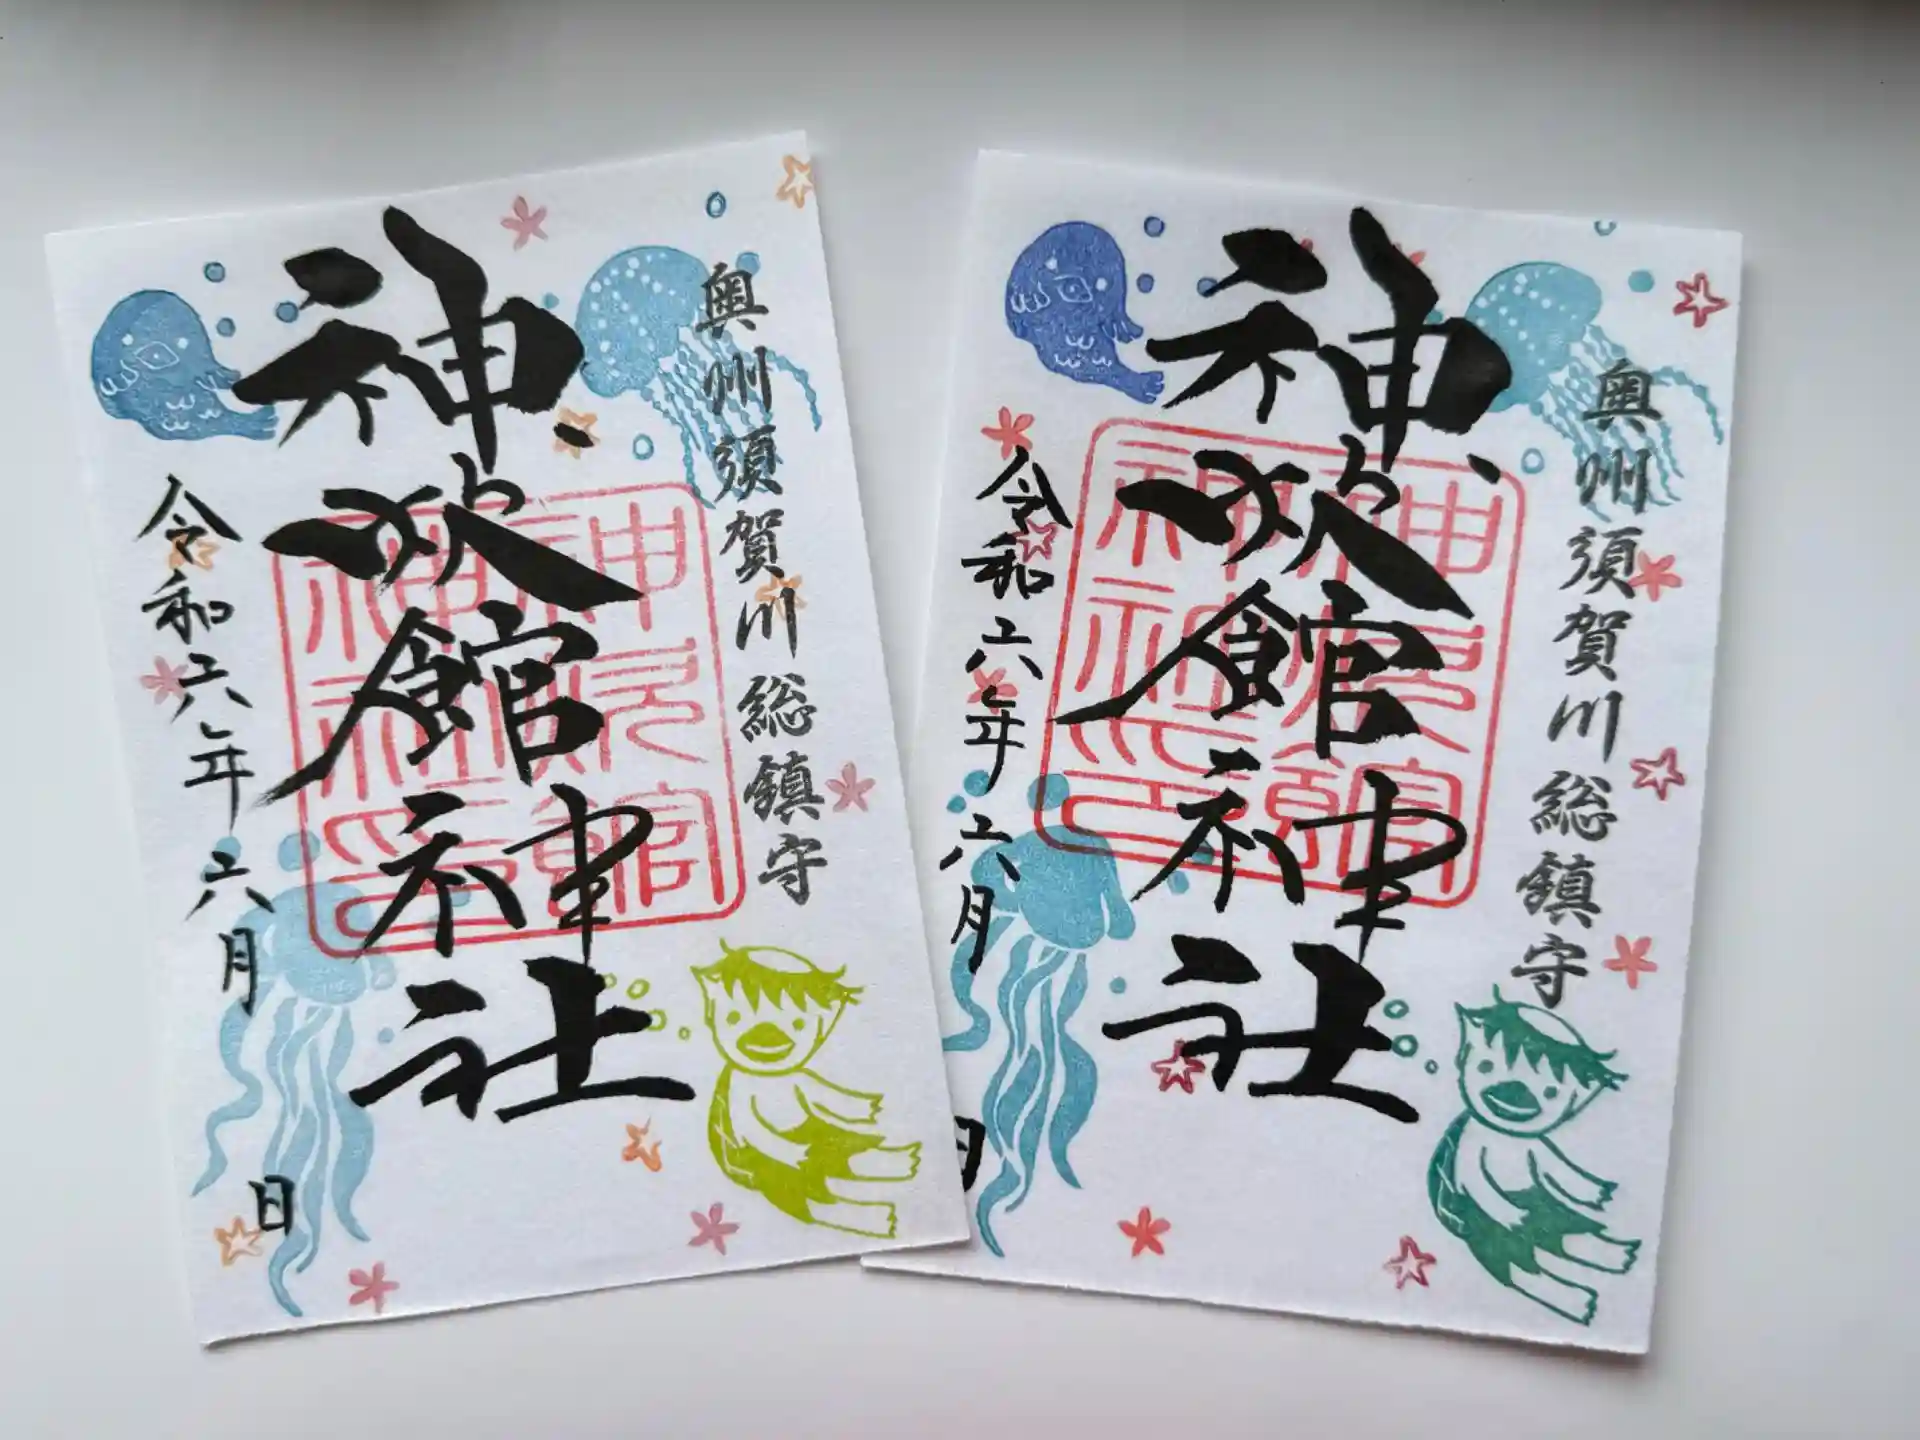 奥州須賀川総鎮守
神炊館神社
令和六年六月 日
奥州須賀川総鎮守
神炊館神社
令和六年六月 日